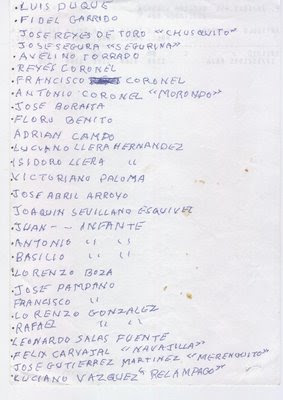 • LUIS DUQUE
• FIDEL GARRIDO
JOSE REYES DE TORO "CHUSQUITO"
JOSE SEGURA "SEGURINA"
• AVELINO TORRADO
• REYES CORONEL
• FRANCISCO CORONEL
• ANTONIO CORONEL "MORONDO"
• JOSE BORAITA
• FLORO BENITO
ADRIAN CAMPO
• LUCIANO LLERA HERNANDEZ
• ISIDORO LLERA "
VICTORIANO PALOMA
JOSE ABRIL ARROYO
JOAQUIN SEVILLANO ESQUIVEL
• JUAN - - INFANTE
• ANTONIO " "
• BASILIO " "
LORENZO BOZA
• JOSE PAMPANO
FRANCISCO "
• LORENZO GONZALEZ
• RAFAEL " "
• LEONARDO SALAS FUENTE
• FELIX CARVAJAL "NAVAJILLA"
JOSE GUTIERREZ MARTINEZ "MERENGUITO"
• LUCIANO VAZQUEZ "RELAMPAGO"